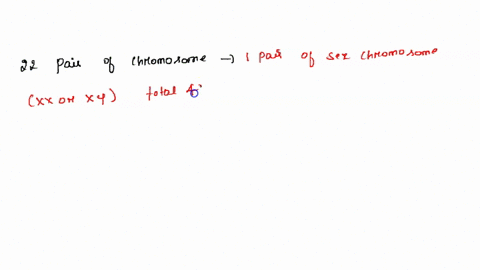 22 pair of chromosome → 1 pair of sex chromosome
(xx or xy) total 4